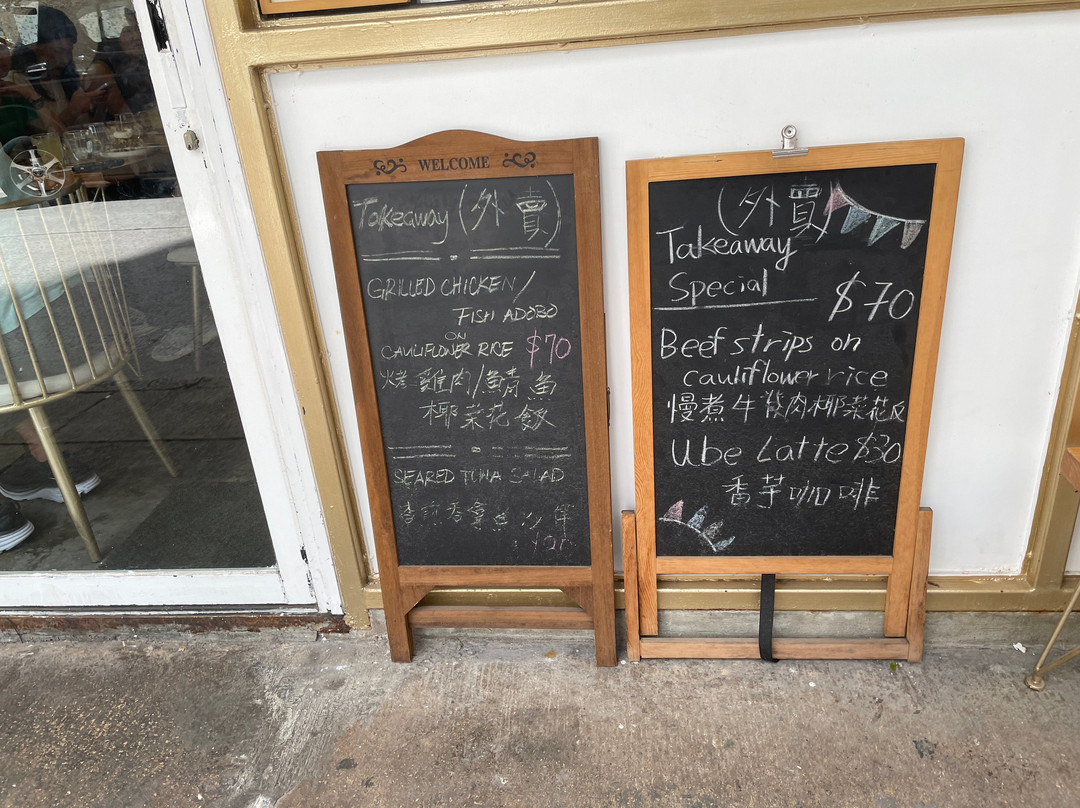 WELCOME
Takeaway (外賣)
GRILLED CHICKEN /
FISH ADOBO
ON
CAULIFLOWER RICE $70
烤雞肉/鯖魚
椰菜花飯
SEARED TUNA SALAD
香煎吞拿魚沙律
(外賣)
Takeaway
Special $70
Beef strips on
cauliflower rice
慢煮牛 肉椰菜花飯
Ube Latte $30
香芋咖啡